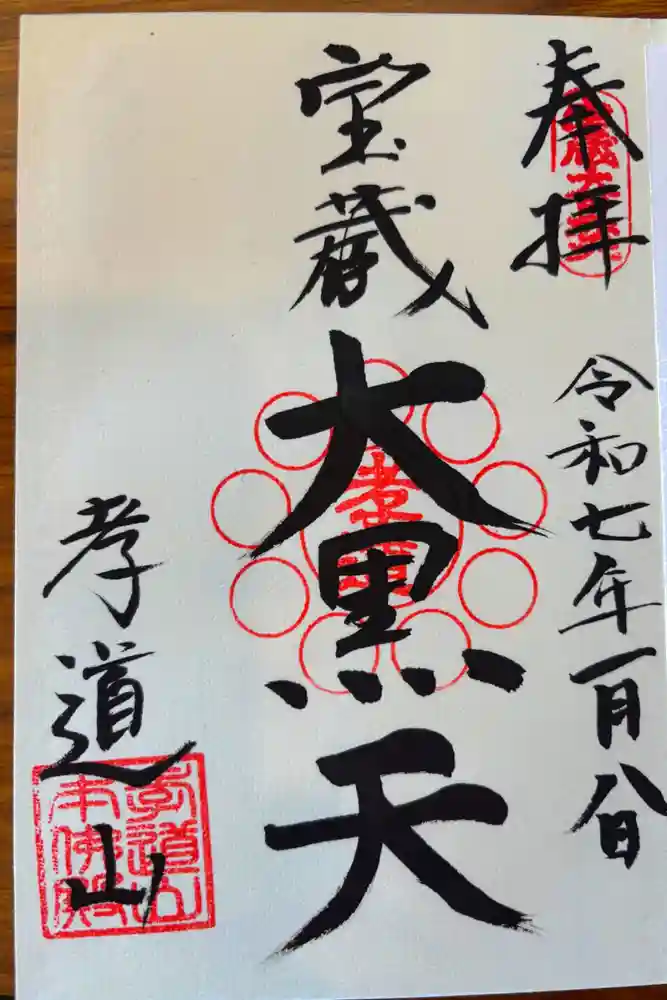 奉拝
令和七年一月八日
宝蔵
大黒天
孝道山
孝道山
本佛殿